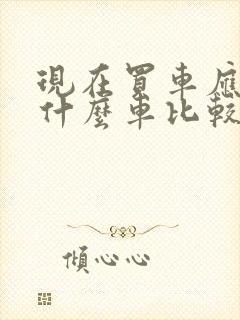 現在買車應
什麼車比較
傾心心